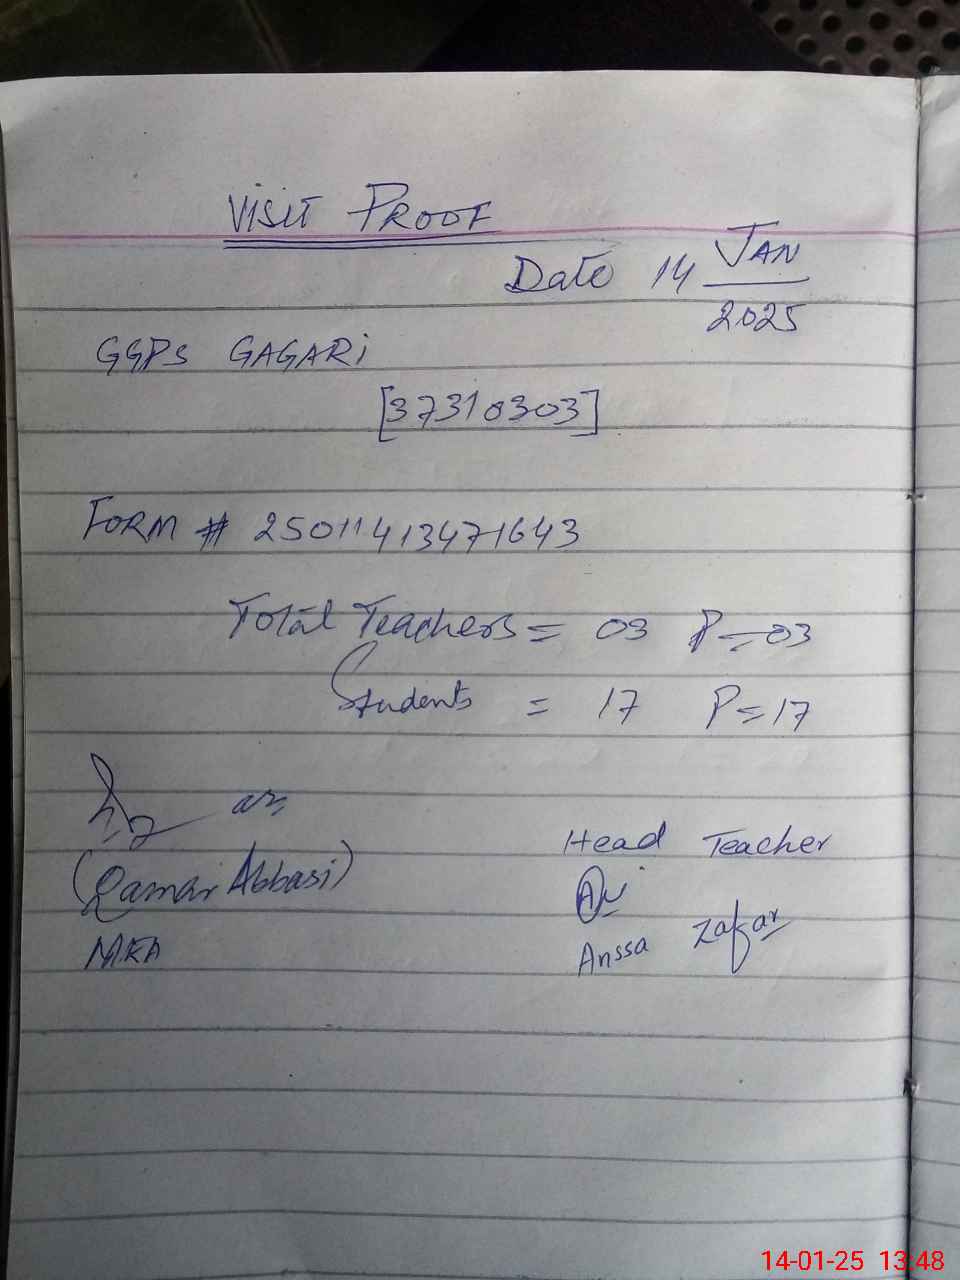 VISIT PROOF
Date 14 JAN
2025
GGPS GAGARi
[37310303]
FORM # 25011413471643
Total Teachers = 03 P=03
Students = 17 P=17
Head Teacher
(Qamar Abbasi)
MEA
Anssa Zafar
14-01-25 13:48